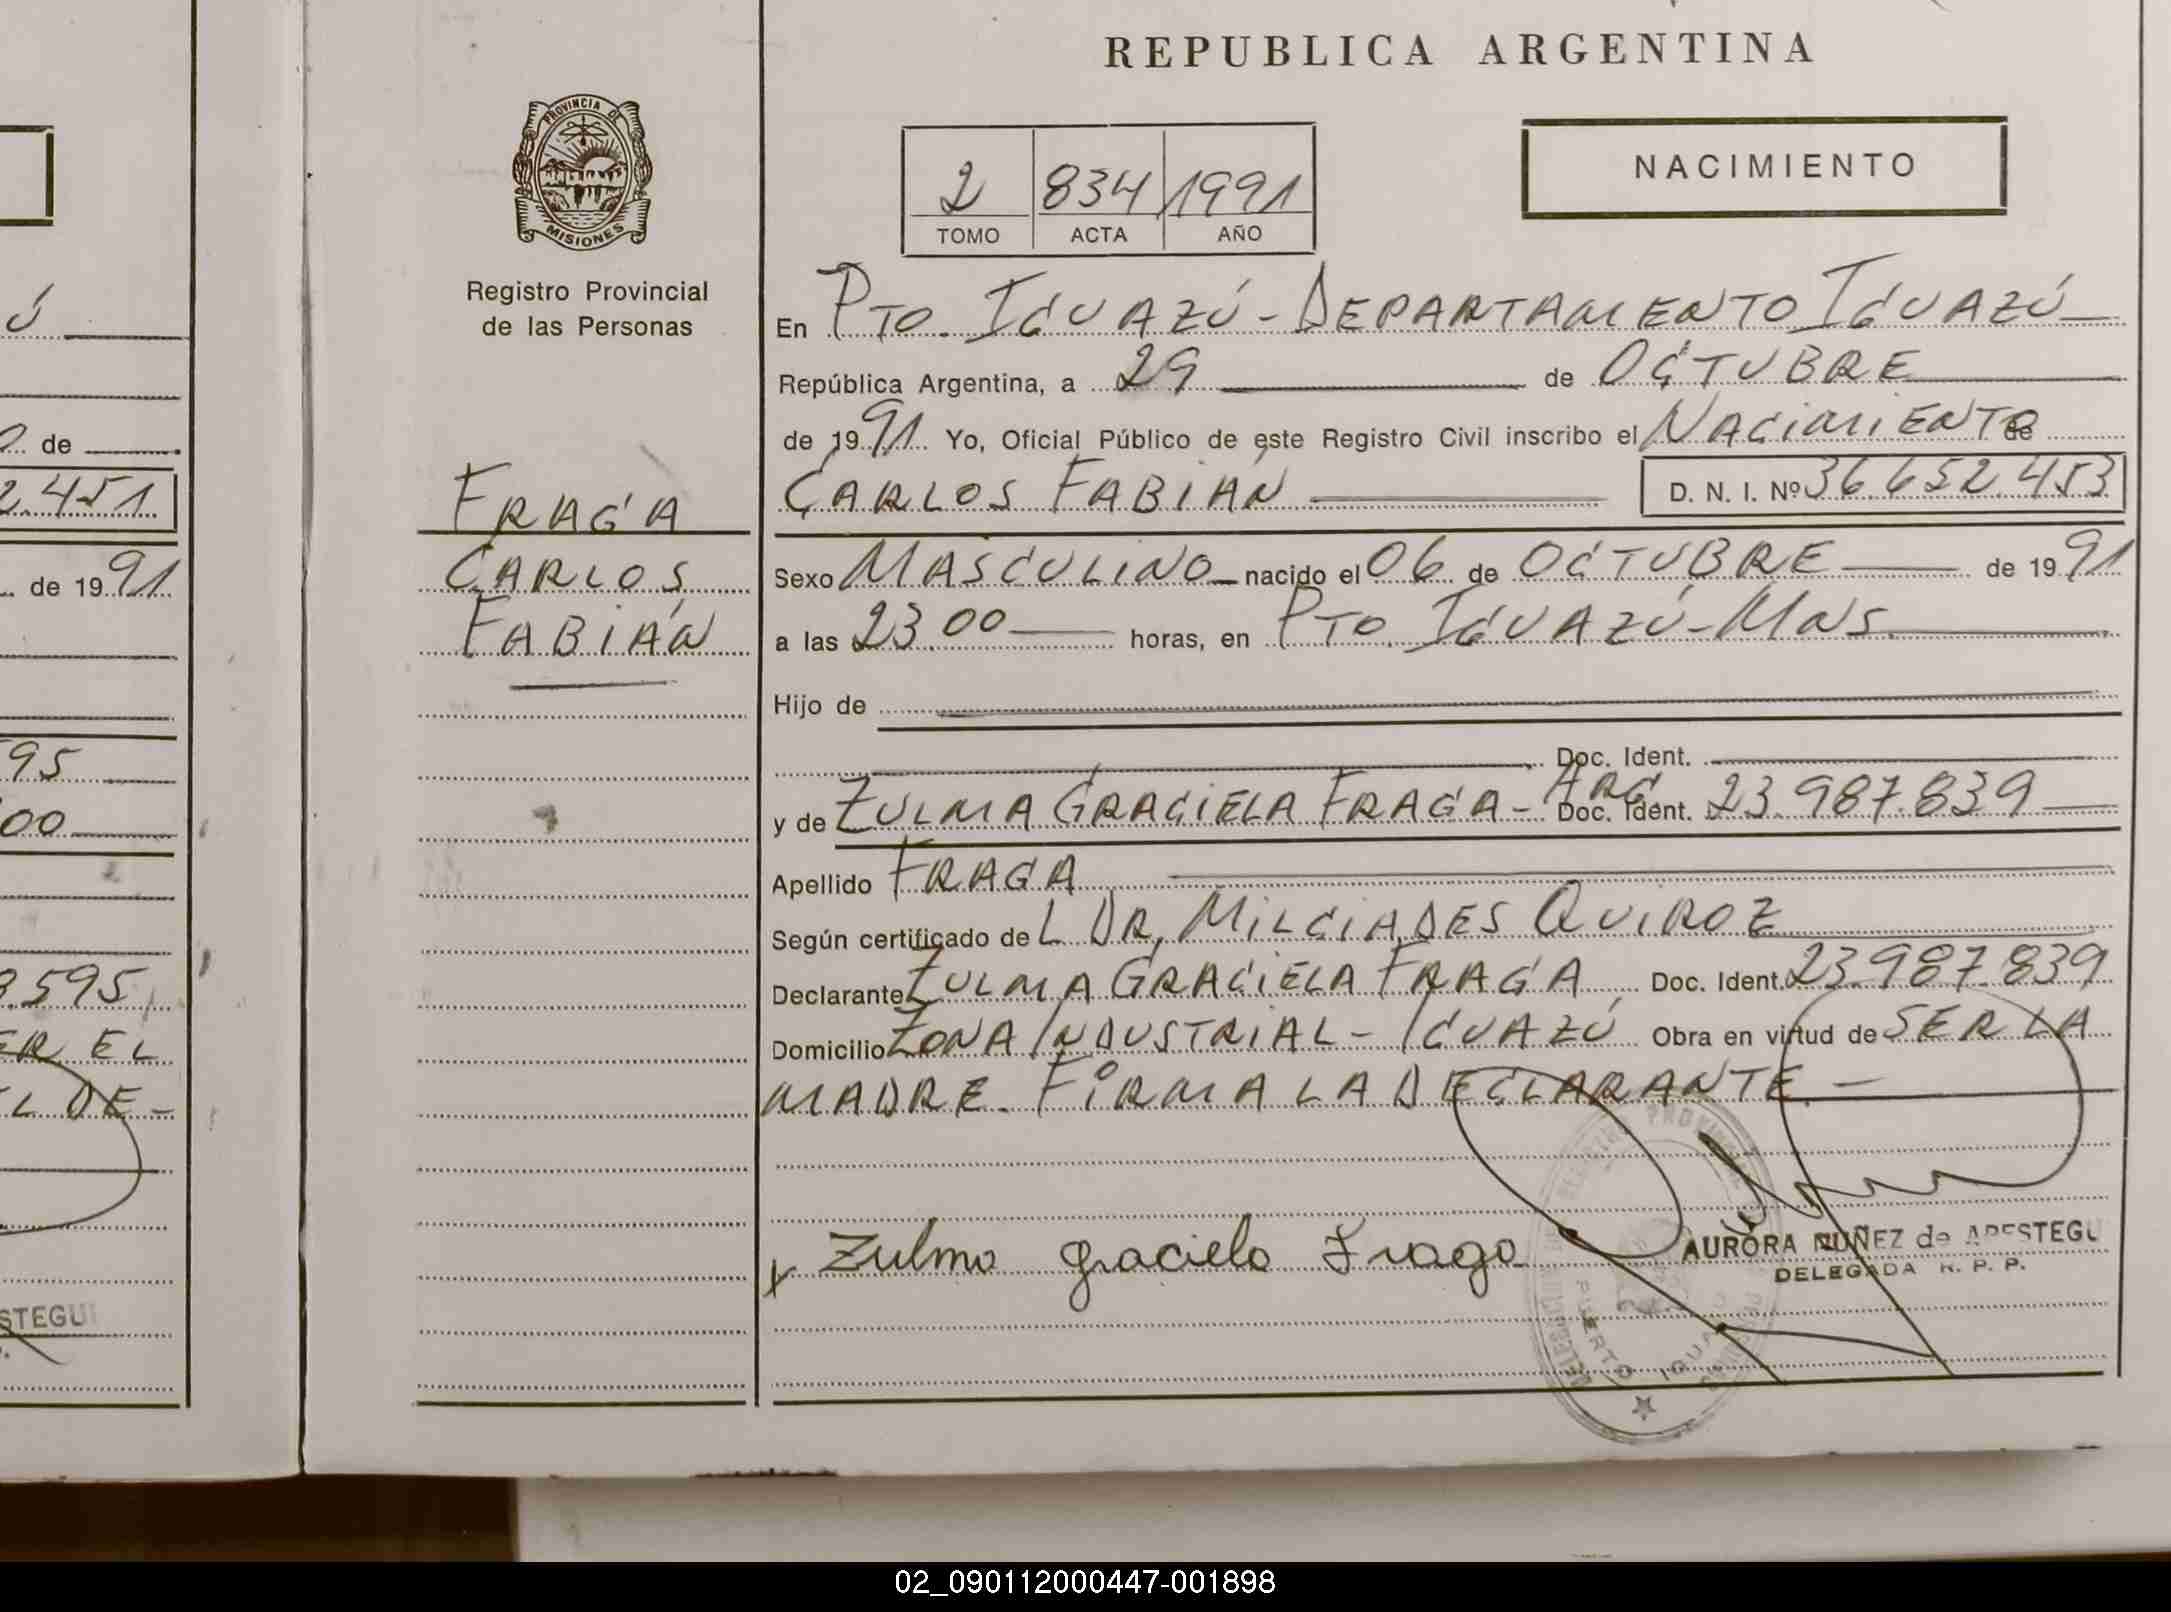 REPUBLICA ARGENTINA
PROVINCIA DE
MISIONES
Registro Provincial
de las Personas
2 834 1991
TOMO ACTA AÑO
NACIMIENTO
En PTO. IGUAZÚ - DEPARTAMENTO IGUAZÚ
República Argentina, a 29 de OCTUBRE
de 1991 Yo, Oficial Público de este Registro Civil inscribo el NACIMIENTO de
CARLOS FABIÁN D. N. I. Nº 36.652.453
FRAGA
CARLOS
FABIÁN
Sexo MASCULINO nacido el 06 de OCTUBRE de 1991
a las 23.00 horas, en PTO. IGUAZÚ - MNS.
Hijo de
Doc. Ident.
y de ZULMA GRACIELA FRAGA - ARG Doc. Ident. 23.987.839
Apellido FRAGA
Según certificado de L DR. MILCIADES QUIROZ
Declarante ZULMA GRACIELA FRAGA Doc. Ident. 23.987.839
Domicilio ZONA INDUSTRIAL - IGUAZÚ Obra en virtud de SER LA
MADRE. FIRMA LA DECLARANTE. -
x Zulma Graciela Fraga
AURORA NUÑEZ de ARESTEGU
DELEGADA R. P. P.
PUERTO IGUA
ú
de
2.451
de 1991
95
00
3595
ER EL
L DE -
STEGUI
02_090112000447-001898